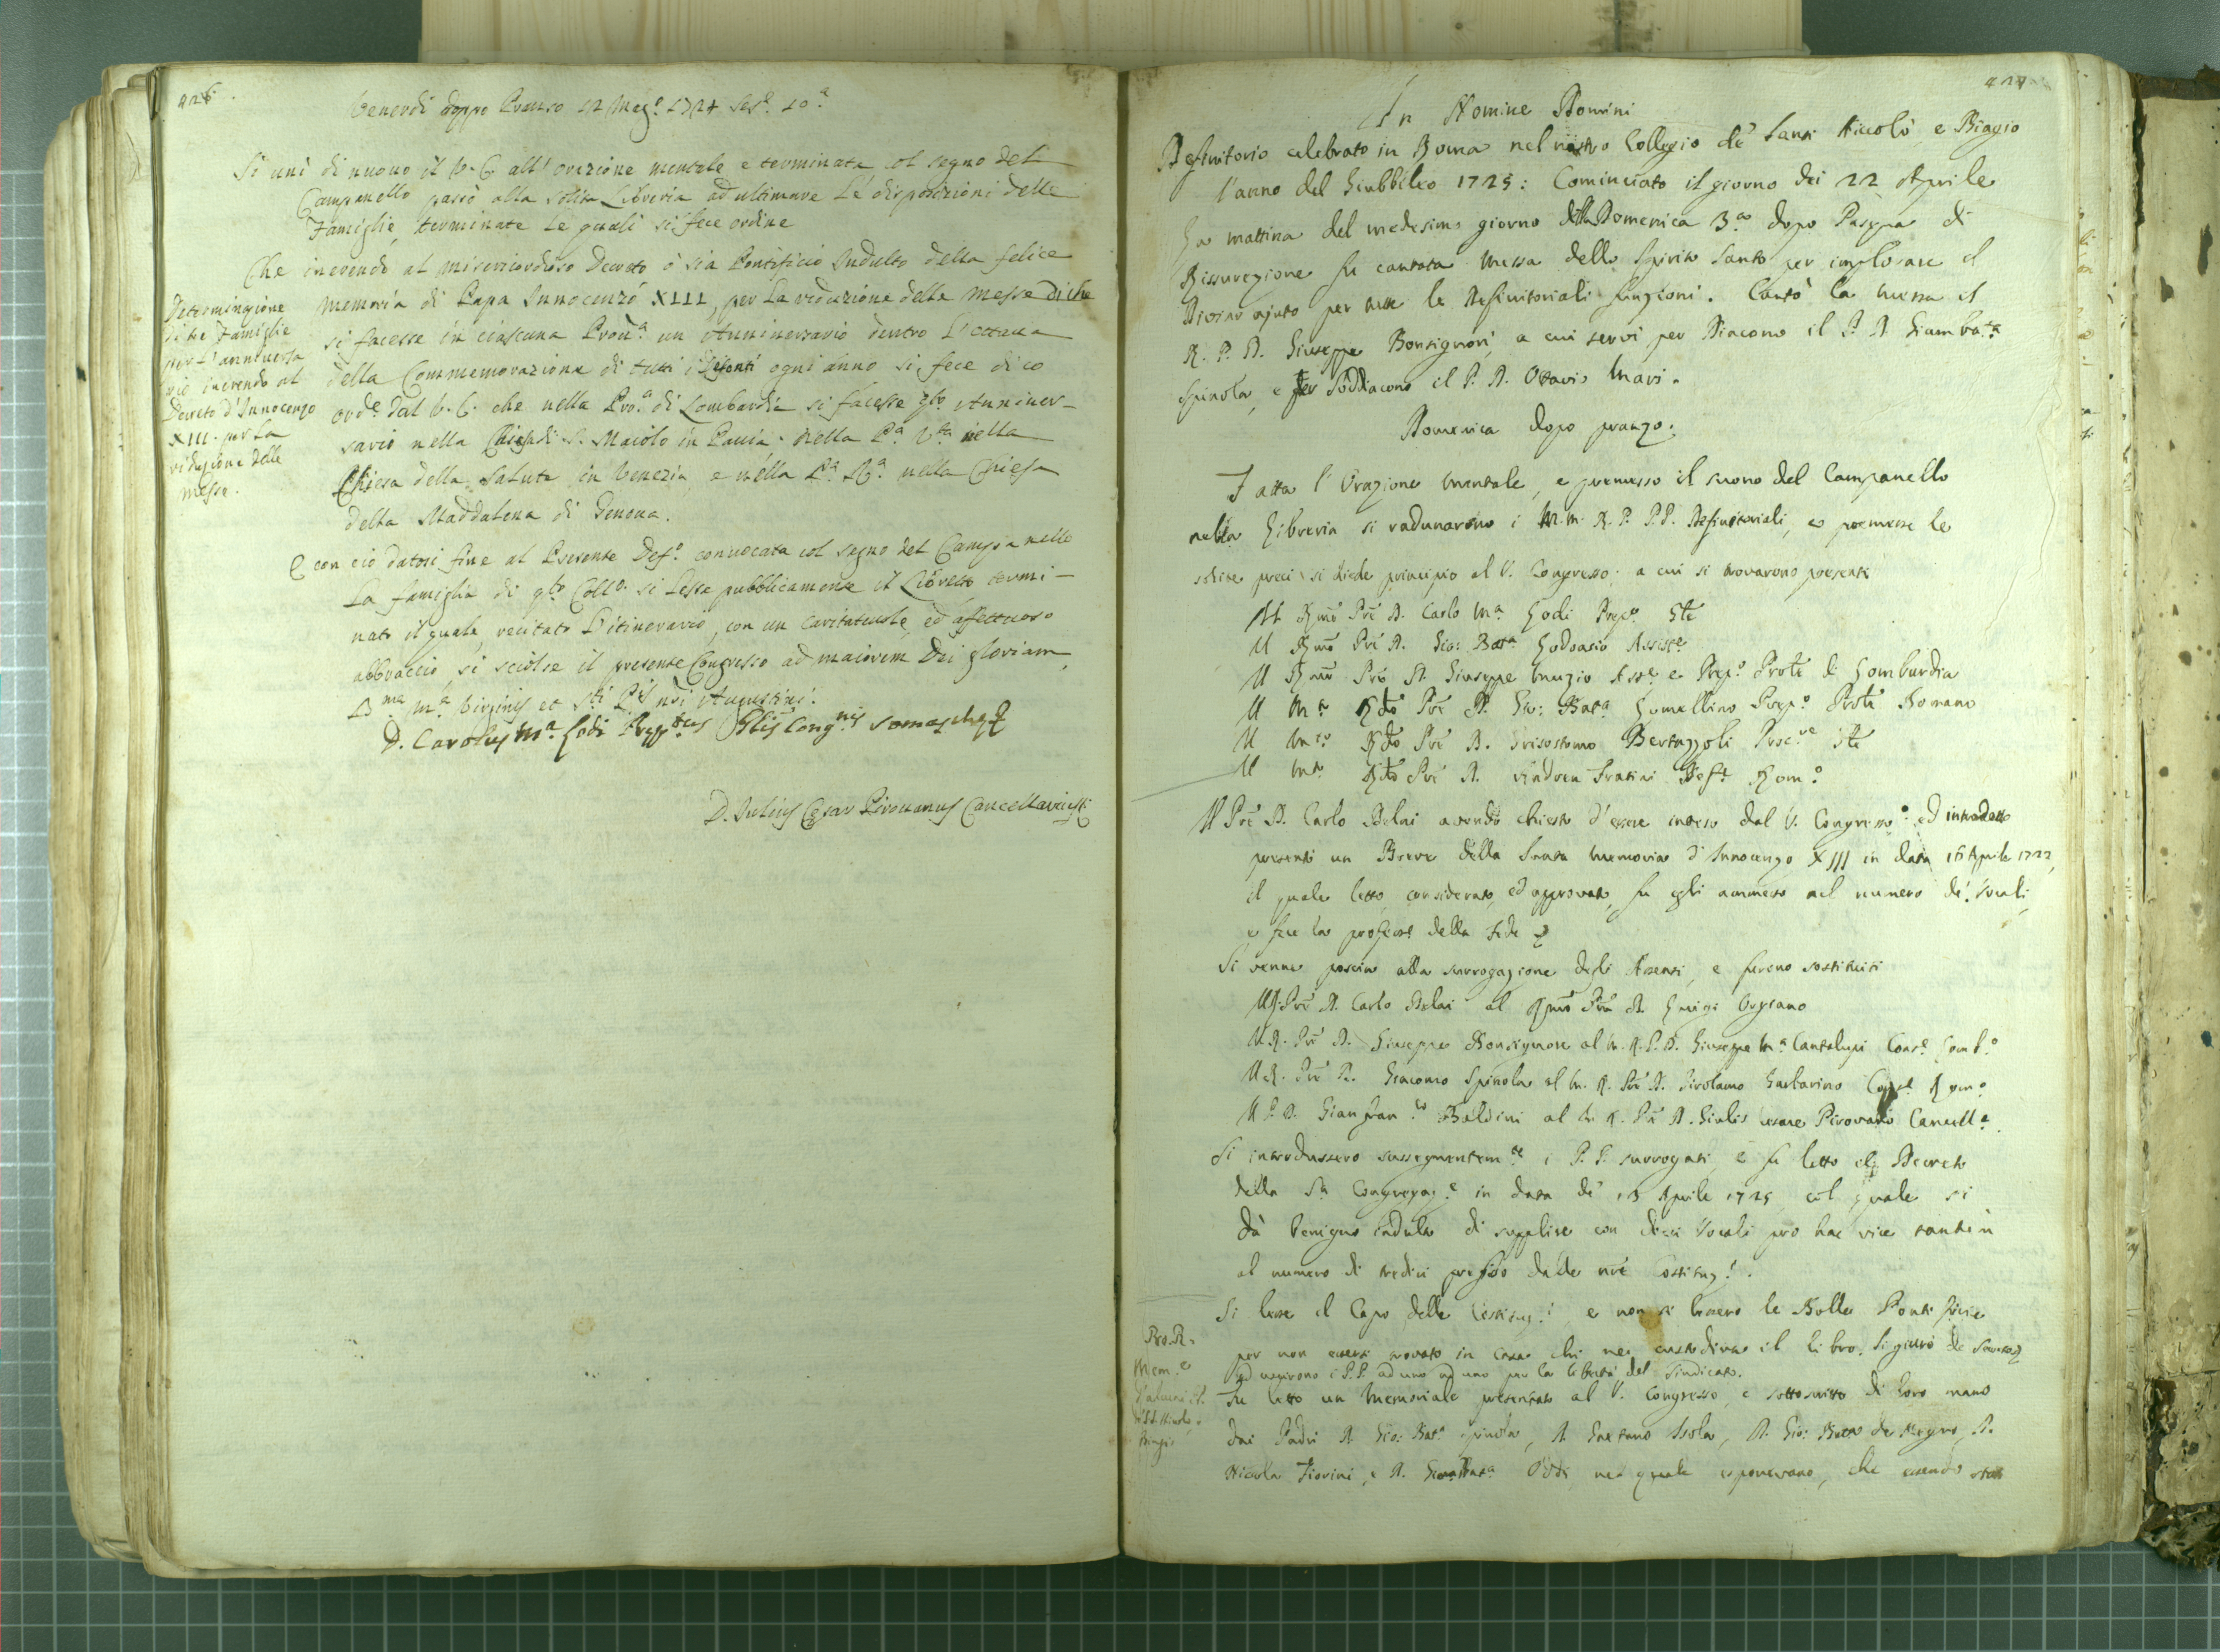 426.
Venerdi doppo Pranso 12 Mag.o 1724 Ses.e 10.a
Si unì di nuovo il V. C. all' orazione mentale e terminata col segno del
Campanello passò alla solita Libreria ad ultimare le disposizioni delle
Famiglie, terminate le quali si fece ordine
Che inerendo al misericordioso Decreto ò sia Pontificio Indulto della felice
memoria di Papa Innocenzo XIII, per la riduzione delle Messe
si facesse in ciascuna Prov.a un Anniversario dentro l'ottava
della Commemorazione di tutti i Defonti ogni anno si fece di co
ord.e dal V. C. che nella Pro.a di Lombardia si facesse q.to Anniver-
sario nella Chiesa di S. Maiolo in Pavia. Nella P.a V.ta nella
Chiesa della Salute in Venezia e nella P.a R.a nella Chiesa
della Maddalena di Genova.
Determinazione
di tre Famiglie
per l'anniversa
rio inerendo al
Decreto d'Innocenzo
XIII. per la
riduzione delle
messe.
E con ciò datosi fine al Presente Def.o convocata col segno del Campanello
la famiglia di q.to Coll.o si lesse pubblicamente il Libretto termi-
nato il quale, recitato l'itinerario, con un caritatevole, ed affettuoso
abbraccio, si sciolse il presente Congresso ad maiorem Dei gloriam,
B.mae M.ae Virginis et S.ti P.is nri Augustini.
D. Carolus M.a Lodi Prep.tus Glis Cong.nis Somaschae
D. Iulius Cesar Pirovanus Cancellarius
427
In Nomine Domini
Definitorio celebrato in Roma nel nostro Collegio de' Santi Niccolò e Biagio
l'anno del Giubbileo 1725: Cominciato il giorno dei 22 Aprile
La mattina del medesimo giorno della Domenica 3.a dopo Pasqua di
Rissurezione fu cantata Messa dello Spirito Santo per implorare il
Divino ajuto per tutte le Definitoriali funzioni. Cantò la Messa il
R. P. D. Giuseppe Bonsignori, a cui servì per Diacono il P. D. Giambat.a
Spinola, e per Soddiacono il P. D. Ottavio Mari.
Domenica dopo pranzo.
Fatta l' Orazione mentale, e premesso il suono del Campanello
nella Libreria si radunarono i M. M. R. P. P. P. Definitoriali, e premesse le
solite preci si diede principio al V. Congresso; a cui si trovarono presenti
Il Rmo Pre D. Carlo M.a Lodi Prep.o Gle
Il Rmo Pre D. Gio: Bat.a Lodoasio Assist.e
Il Rmo Pre D. Giuseppe Muzio Ass.e e Prep.o Prole di Lombardia
Il M.o Rdo Pre D. Gio: Bat.a Lomellino Prep.o Prole Romano
Il M.to Rdo Pre D. Grisostomo Bertazzoli Proc.re Gle
Il M.to Rdo Pre D. Andrea Fratini Def.e Rom.o
Il Pre D. Carlo Delai avendo chiesto d'essere inteso dal V. Congresso ed introdotto
presentò un Breve della Santa memoria d'Innocenzo XIII in data 16 Aprile 1722,
il quale letto, considerato, ed approvato, fu egli ammesso nel numero de' Vocali,
e fece la profess.e della Fede
Si venne poscia alla surrogazione degli Assenti, e furono sostituiti
Il R. Pre D. Carlo Delai al Rmo Pre D. Luigi
Il R. Pre D. Giuseppe Bonsignore al M. R. P. D. Giuseppe M.a Cantalupi Cons.e Lomb.o
Il R. Pre D. Giacomo Spinola al M. R. Pre D. Girolamo Gastarino Cons.e Rom.o
Il P. D. Gianfran.co Baldini al M. R. Pre D. Giulio Cesare Pirovano Cancell.e
Si introdussero sussequentem.te i P. P. surrogati, e fu letto il Decreto
della S.a Congregaz.e in data de' 13 Aprile 1725, col quale si
dà benigno indulto di supplire con dieci Vocali pro hac vice tantum
al numero di tredici prefisso dalle nre Costituz.i.
Si lesse il Capo delle Costituz.i, e non si lessero le Bolle Pontificie
per non essersi trovato in Casa chi ne custodiva il libro. Si giurò de
ed uscirono i P.P. ad uno ad uno per la libertà del Sindicato.
Fu letto un Memoriale presentato al V. Congresso, e sottoscritto di loro mano
dai Padri D. Gio: Bat.a Spinola, D. Gaetano Isola, D. Gio: Batta de Negro, D.
Nicola Fiorini, e D. Giovanbat.a Oddi, nel quale esponevano, che essendo stati
Pro. R.
Mem.e